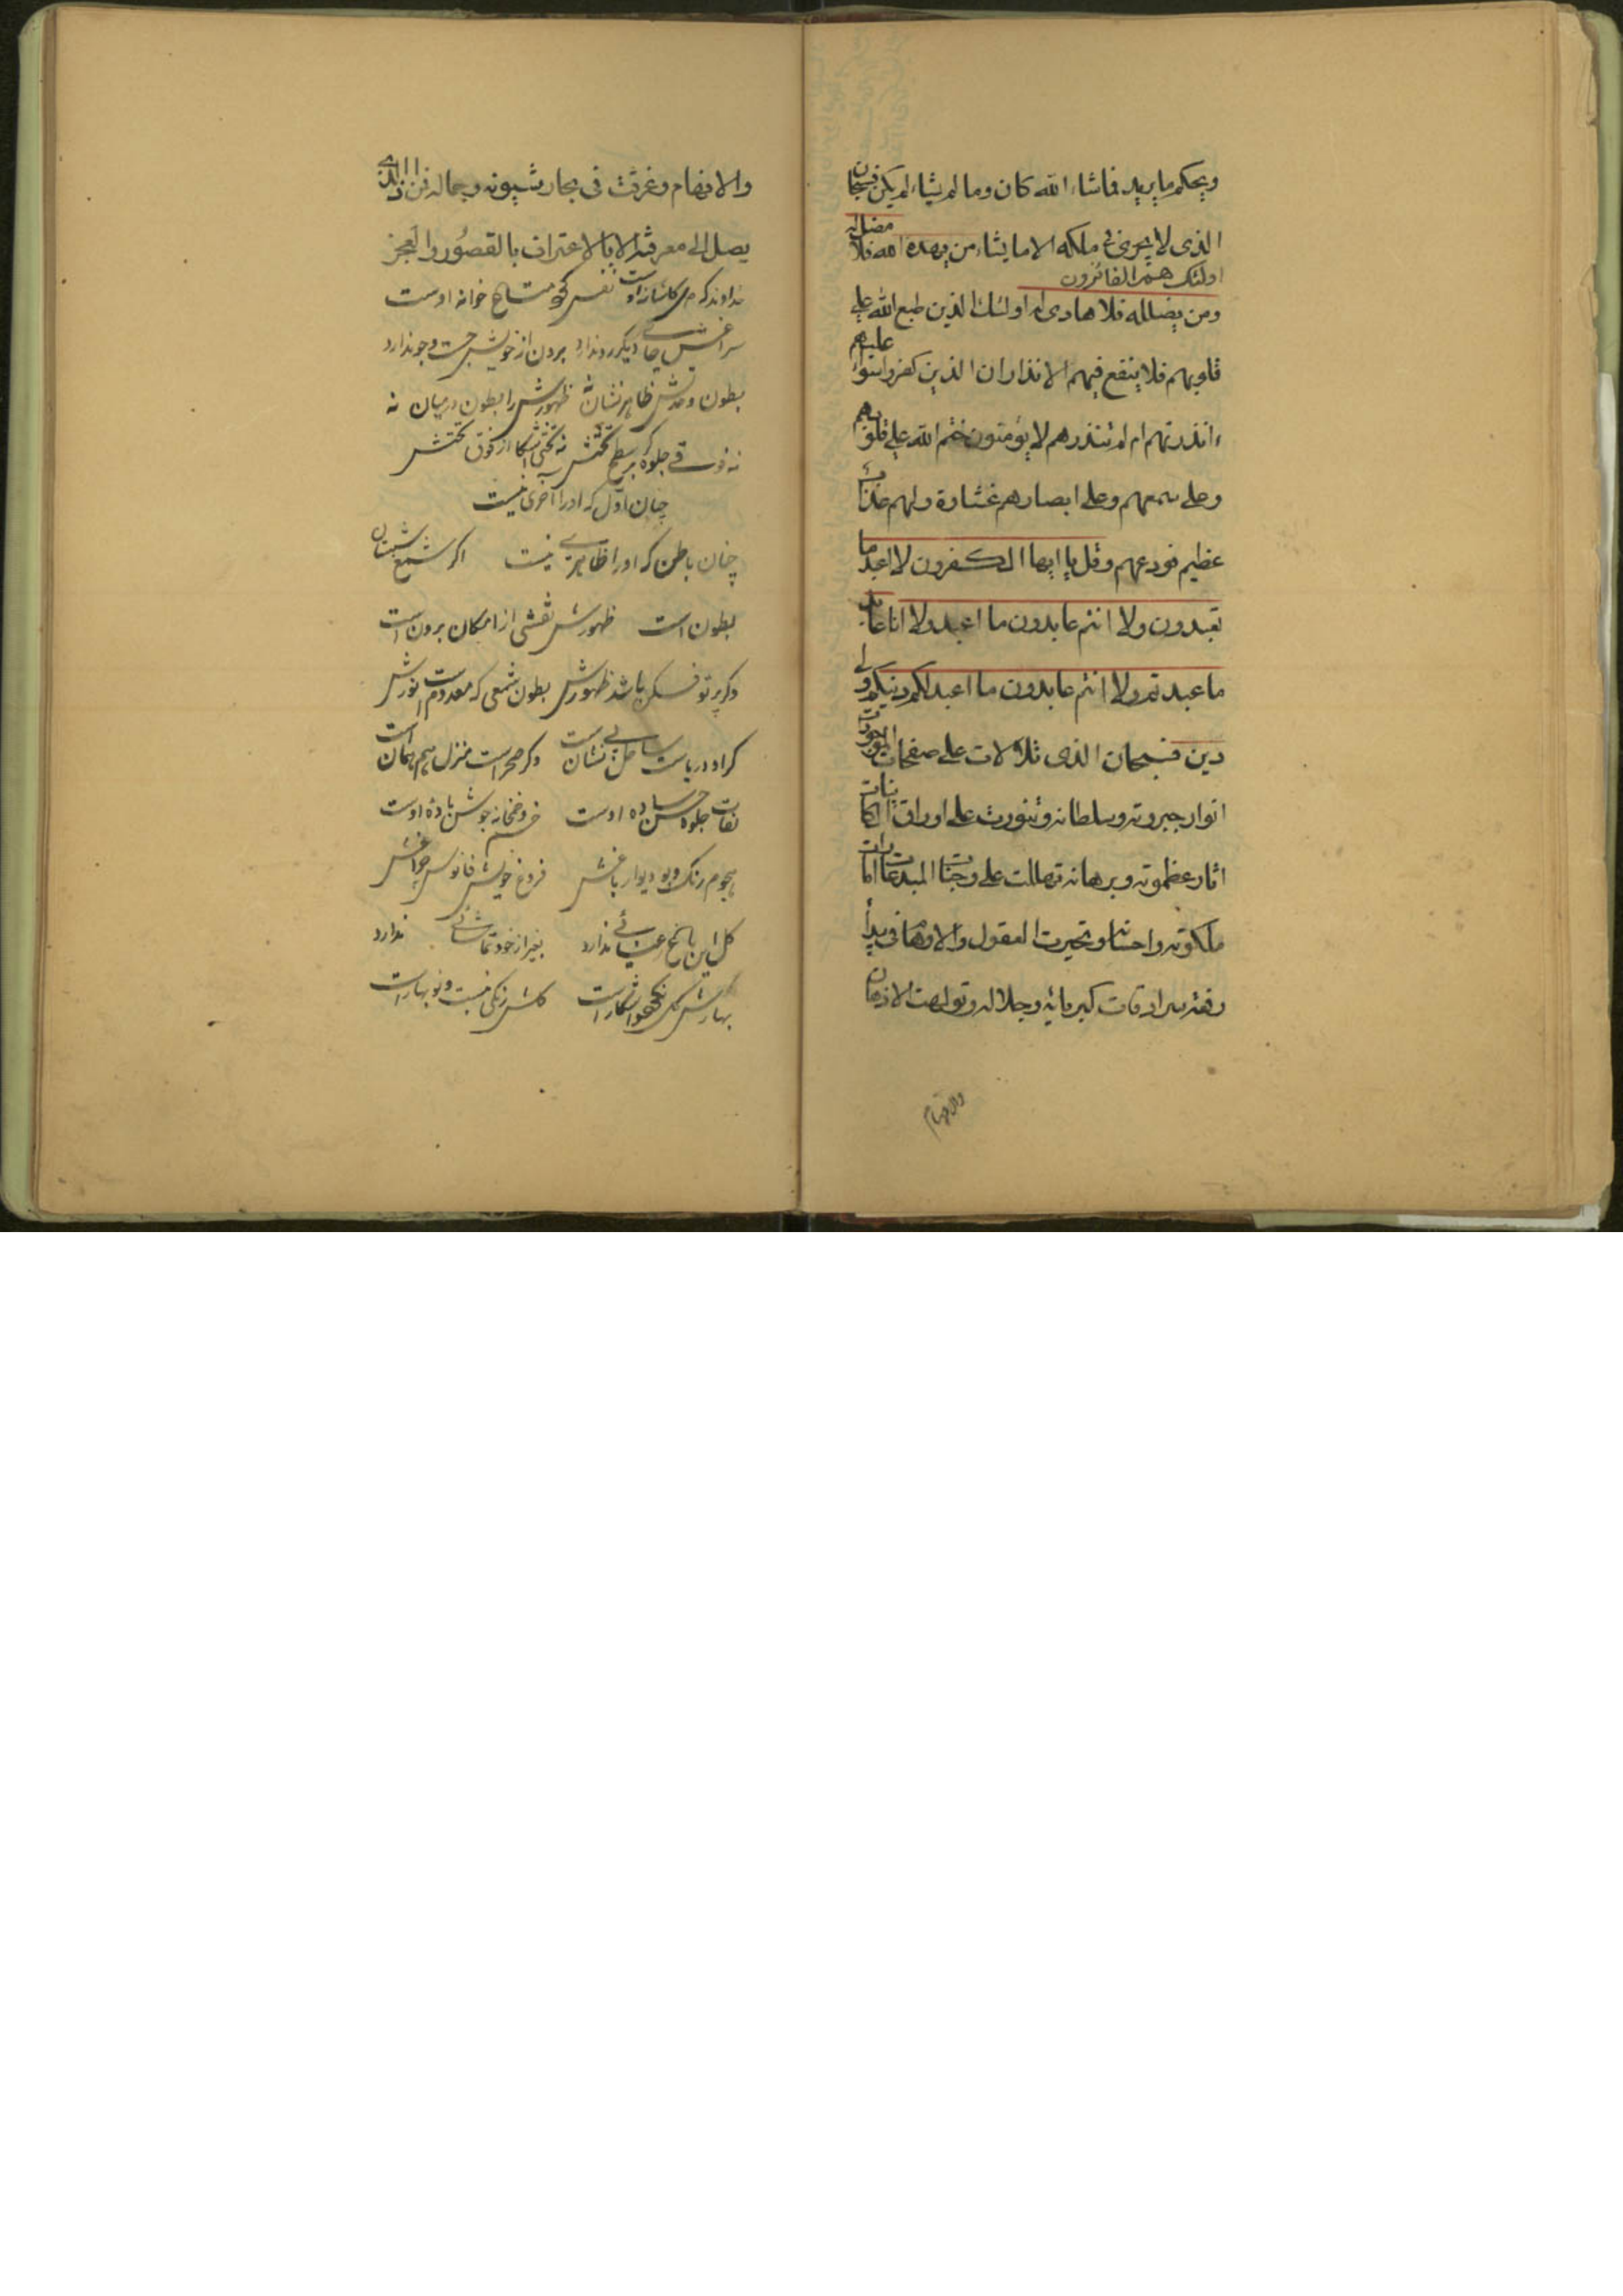 ويحكم ما يريد فما شاء الله كان وما لم يشاء لم يكن فسبحان
الذى لا يجرى فى ملكه الا ما يشاء من يهده الله فلا مضل له
اولئك هم الفائزون
ومن يضلله فلا هادى له اولئك الذين طبع الله على
قلوبهم فلا ينفع فيهم الانذار ان الذين كفروا سواء عليهم
ءانذرتهم ام لم تنذرهم لا يؤمنون ختم الله على قلوبهم
وعلى سمعهم وعلى ابصارهم غشاوة ولهم عذاب
عظيم فودعهم وقل يا ايها الكفرون لا اعبد ما
تعبدون ولا انتم عابدون ما اعبد ولا انا عابد
ما عبدتم ولا انتم عابدون ما اعبد لكم دينكم ولى
دين فسبحان الذى تلألات على صفحات الموجودات
انوار جبروته وسلطانه وتنورت على اوراق الكائنات
اثار عظموته وبرهانه تهاللت على وجنات المبدعات امارات
ملكوته واحسانه وتحيرت العقول والاوهام فى بيدآء
سرادقات كبريائه وجلاله وتولهت الاذهان
والافهام
والافهام وغرقت فى بحار شيونه وجماله فمن ذا الذى
يصل الى معرفته الا بالاعتراف بالقصور والعجز
خداوند كه دل كاشانه اوست نفس متاع خانه اوست
سراغش جاى ديگر رو ندارد برون از خويش جست و جو ندارد
بطون وحدتش ظاهر نشان نه ظهورش را بطون درميان نه
نه فوقى جلوه گر بر سطح تختش نه تختى آشكار از فوق تختش
چنان اول كه او را آخرى نيست
چنان باطن كه او را ظاهرى نيست اگر شمع شبستان
بطون است ظهورش نقشى از امكان برون است
وگر پرتو فكن باشد ظهورش بطون شمعى كه معدوم است نورش
گر او درياست ساحل بى نشان است وگر صحراست منزل هم همان است
نقاب جلوه حسن ساده اوست خم و خمخانه جوش باده اوست
هجوم رنگ وبو ديوار باغش فروغ خويش فانوس چراغش
گل اين باغ رعنائى ندارد بغير از خود تماشائى ندارد
بهارش است گلش رنگى نيست و نوبهار است